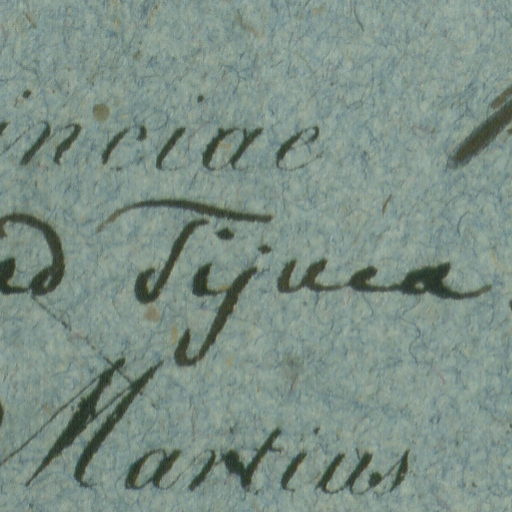 inciae
ad Tijuca
Martius